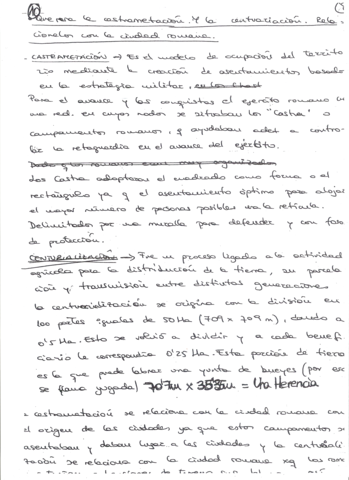 10
Que era la castrametación. Y la centuriación. Rela-
cionelos con la ciudad romana.
- CASTRAMETACIÓN → Es el modelo de ocupación del territo
rio mediante la creación de asentamientos basado
en la estrategia militar,
Para el avance y las conquistas el ejercito romano
una red, en cuyos nodos se situaban los "Castra" o
campamentos romanos, q ayudaban a contro-
lar la retaguardia en el avance del ejército.
Los Castra adoptaban el cuadrado como forma o el
rectángulo ya q el asentamiento óptimo para alojar
el mayor número de personas posibles era la retícula.
Delimitados por una muralla para defender y con foso
de protección.
→ Fue un proceso ligado a la actividad
agrícola para la distribución de la tierra, su parcela
ción y transmisión entre distintas generaciones
la se origina con la división en
100 partes iguales de 50 Ha (709 x 709 m), dando a
0'5 Ha. Esto se volvió a dividir y a cada benefi
ciario le correspondía 0'25 Ha. Esta porción de tierra
es la que puede labrar una yunta de bueyes (por eso
se llama yugada) 707m x 35'35m = Una Herencia
La castrametación se relaciona con la ciudad romana con
el origen de las ciudades ya que estos campamentos
asentaban y daban lugar a las ciudades y la
se relaciona con la ciudad romana xq las